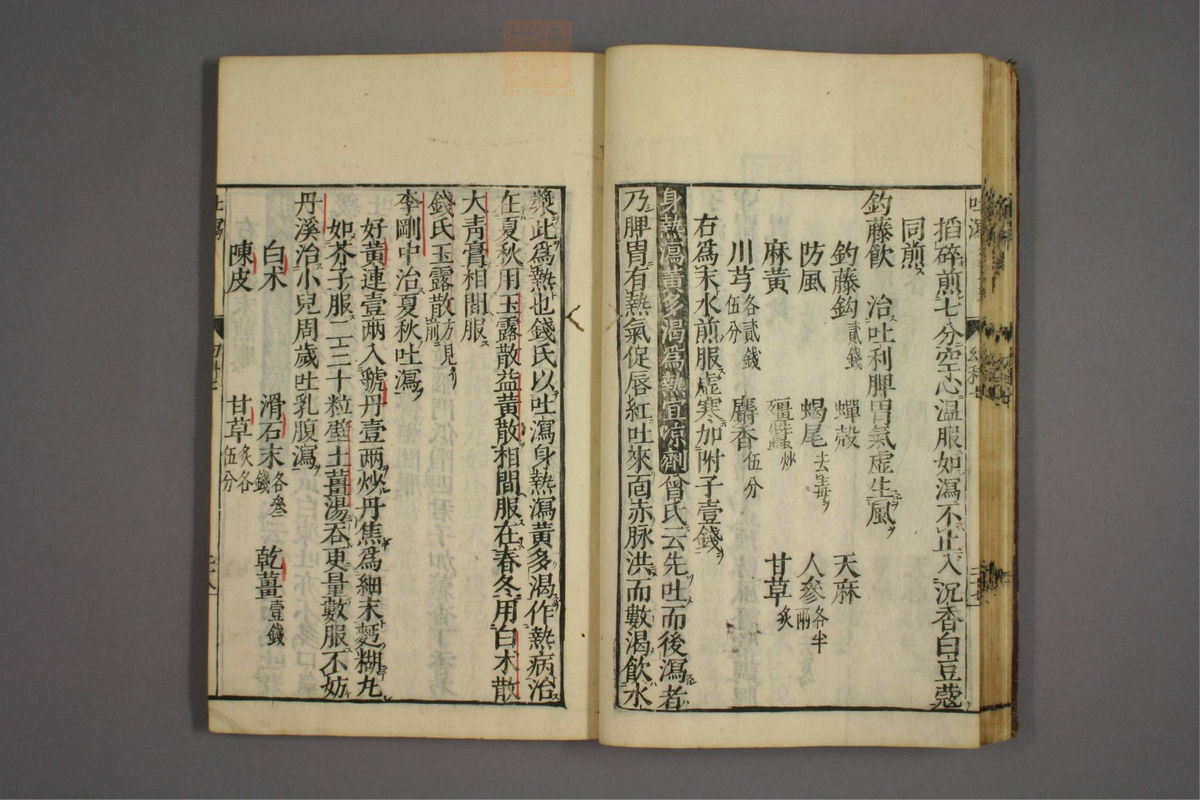 搯碎煎七分空心温服如瀉不止入沉香白豆蔻
同煎
釣藤飲 治吐利脾胃氣虛生風
釣藤鈎貳錢 蟬殼 天麻
防風 蝎尾去毒 人參各半兩
麻黃 殭蠶炒 甘草炙
川芎各貳錢伍分 麝香伍分
右爲末水煎服虛寒加附子壹錢
身熱瀉黃多渴爲熱宜凉劑曾氏云先吐而後瀉者
乃脾胃有熱氣促唇紅吐來面赤脉洪而數渴飲水
漿此爲熱也錢氏以吐瀉身熱瀉黃多渴作熱病治
在夏秋用玉露散益黃散相間服在春冬用白术散
大青膏相間服
錢氏玉露散方見前
李剛中治夏秋吐瀉
好黃連壹兩入虢丹壹兩炒丹焦爲細末麪糊丸
如芥子服二三十粒壁土薑湯吞更量數服不妨
丹溪治小兒周歲吐乳腹瀉
白术 滑石末各叁錢 乾薑壹錢
陳皮 甘草炙各伍分
吐瀉